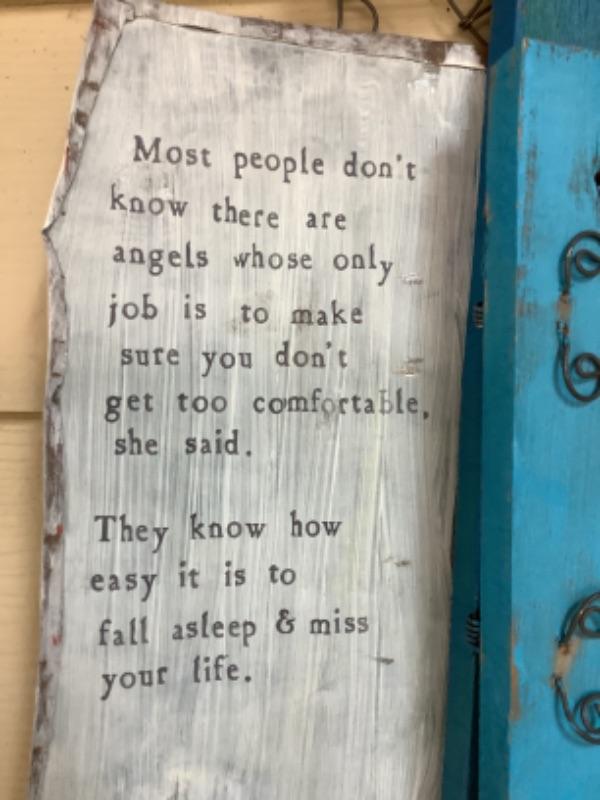 Most people don't
know there are
angels whose only
job is to make
sure you don't
get too comfortable,
she said.
They know how
easy it is to
fall asleep & miss
your life.